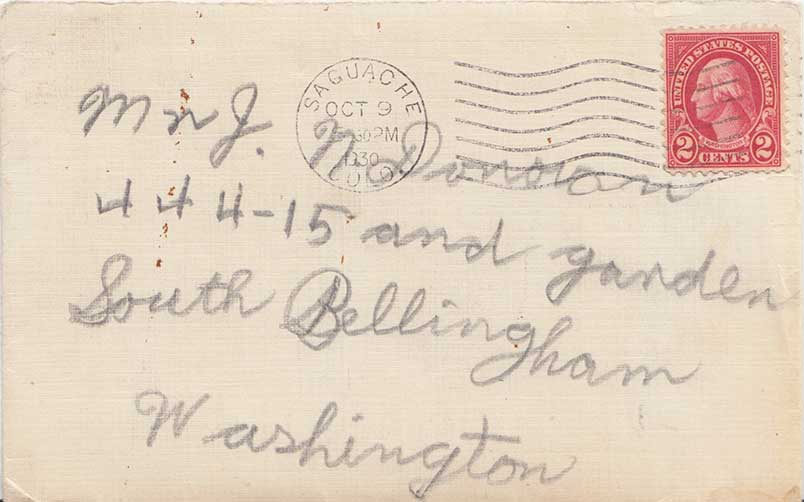 SAGUACHE
OCT 9
30PM
1930
COLO.
UNITED STATES POSTAGE
WASHINGTON
2 CENTS 2
Mr J. N Donovan
444-15 and garden
South Bellingham
Washington